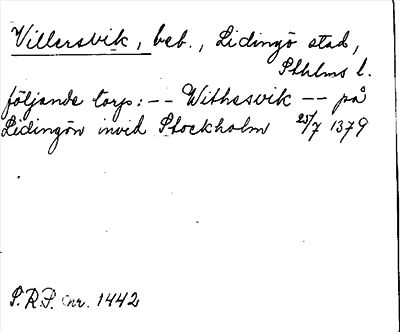 Villersvik, beb., Lidingö stad,
Sthlms l.
följande torp: -- Withesvik -- på
Lidingön invid Stockholm 25/7 1379
S.R.P. nr. 1442